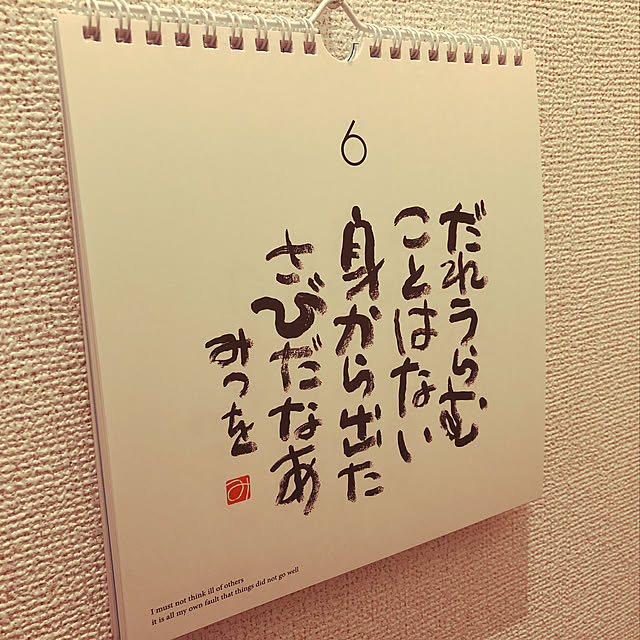 6
だれうらむ
ことはない
身から出た
さびだなあ
みつを
み
I must not think ill of others
it is all my own fault that things did not go well